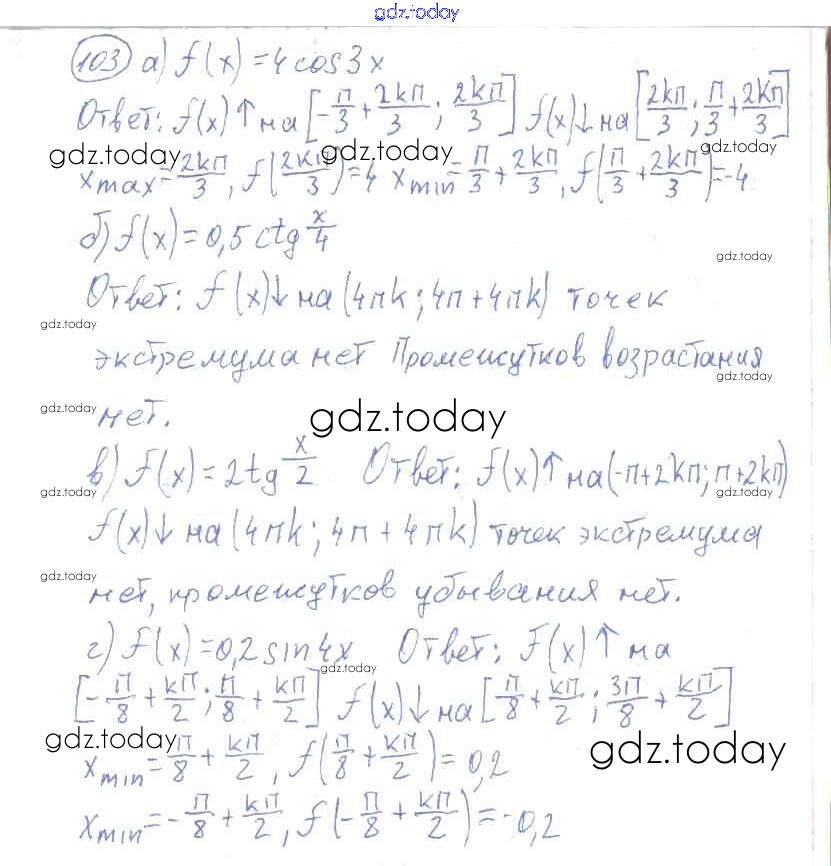 gdz.today
103 а) f(x)=4cos3x
Ответ: f(x)↑на [-п/3+2kп/3; 2kп/3] f(x)↓на [2kп/3; п/3+2kп/3]
gdz.today gdz.today gdz.today
xmax=2kп/3, f(2kп/3)=4 xmin=п/3+2kп/3, f(п/3+2kп/3)=-4
б) f(x)=0,5ctg x/4
gdz.today
Ответ: f(x)↓ на (4пk; 4п+4пk) точек
gdz.today
экстремума нет Промежутков возрастания
gdz.today
gdz.today нет. gdz.today
в) f(x)=2tg x/2 Ответ: f(x)↑на(-п+2kп; п+2kп)
gdz.today gdz.today
f(x)↓ на (4пk; 4п+4пk) точек экстремума
gdz.today
нет, промежутков убывания нет.
г) f(x)=0,2sin4x Ответ: f(x)↑на
gdz.today
[-п/8+kп/2; п/8+kп/2] f(x)↓на [п/8+kп/2; 3п/8+kп/2]
gdz.today gdz.today
xmin=п/8+kп/2, f(п/8+kп/2)=0,2
xmin=-п/8+kп/2, f(-п/8+kп/2)=-0,2